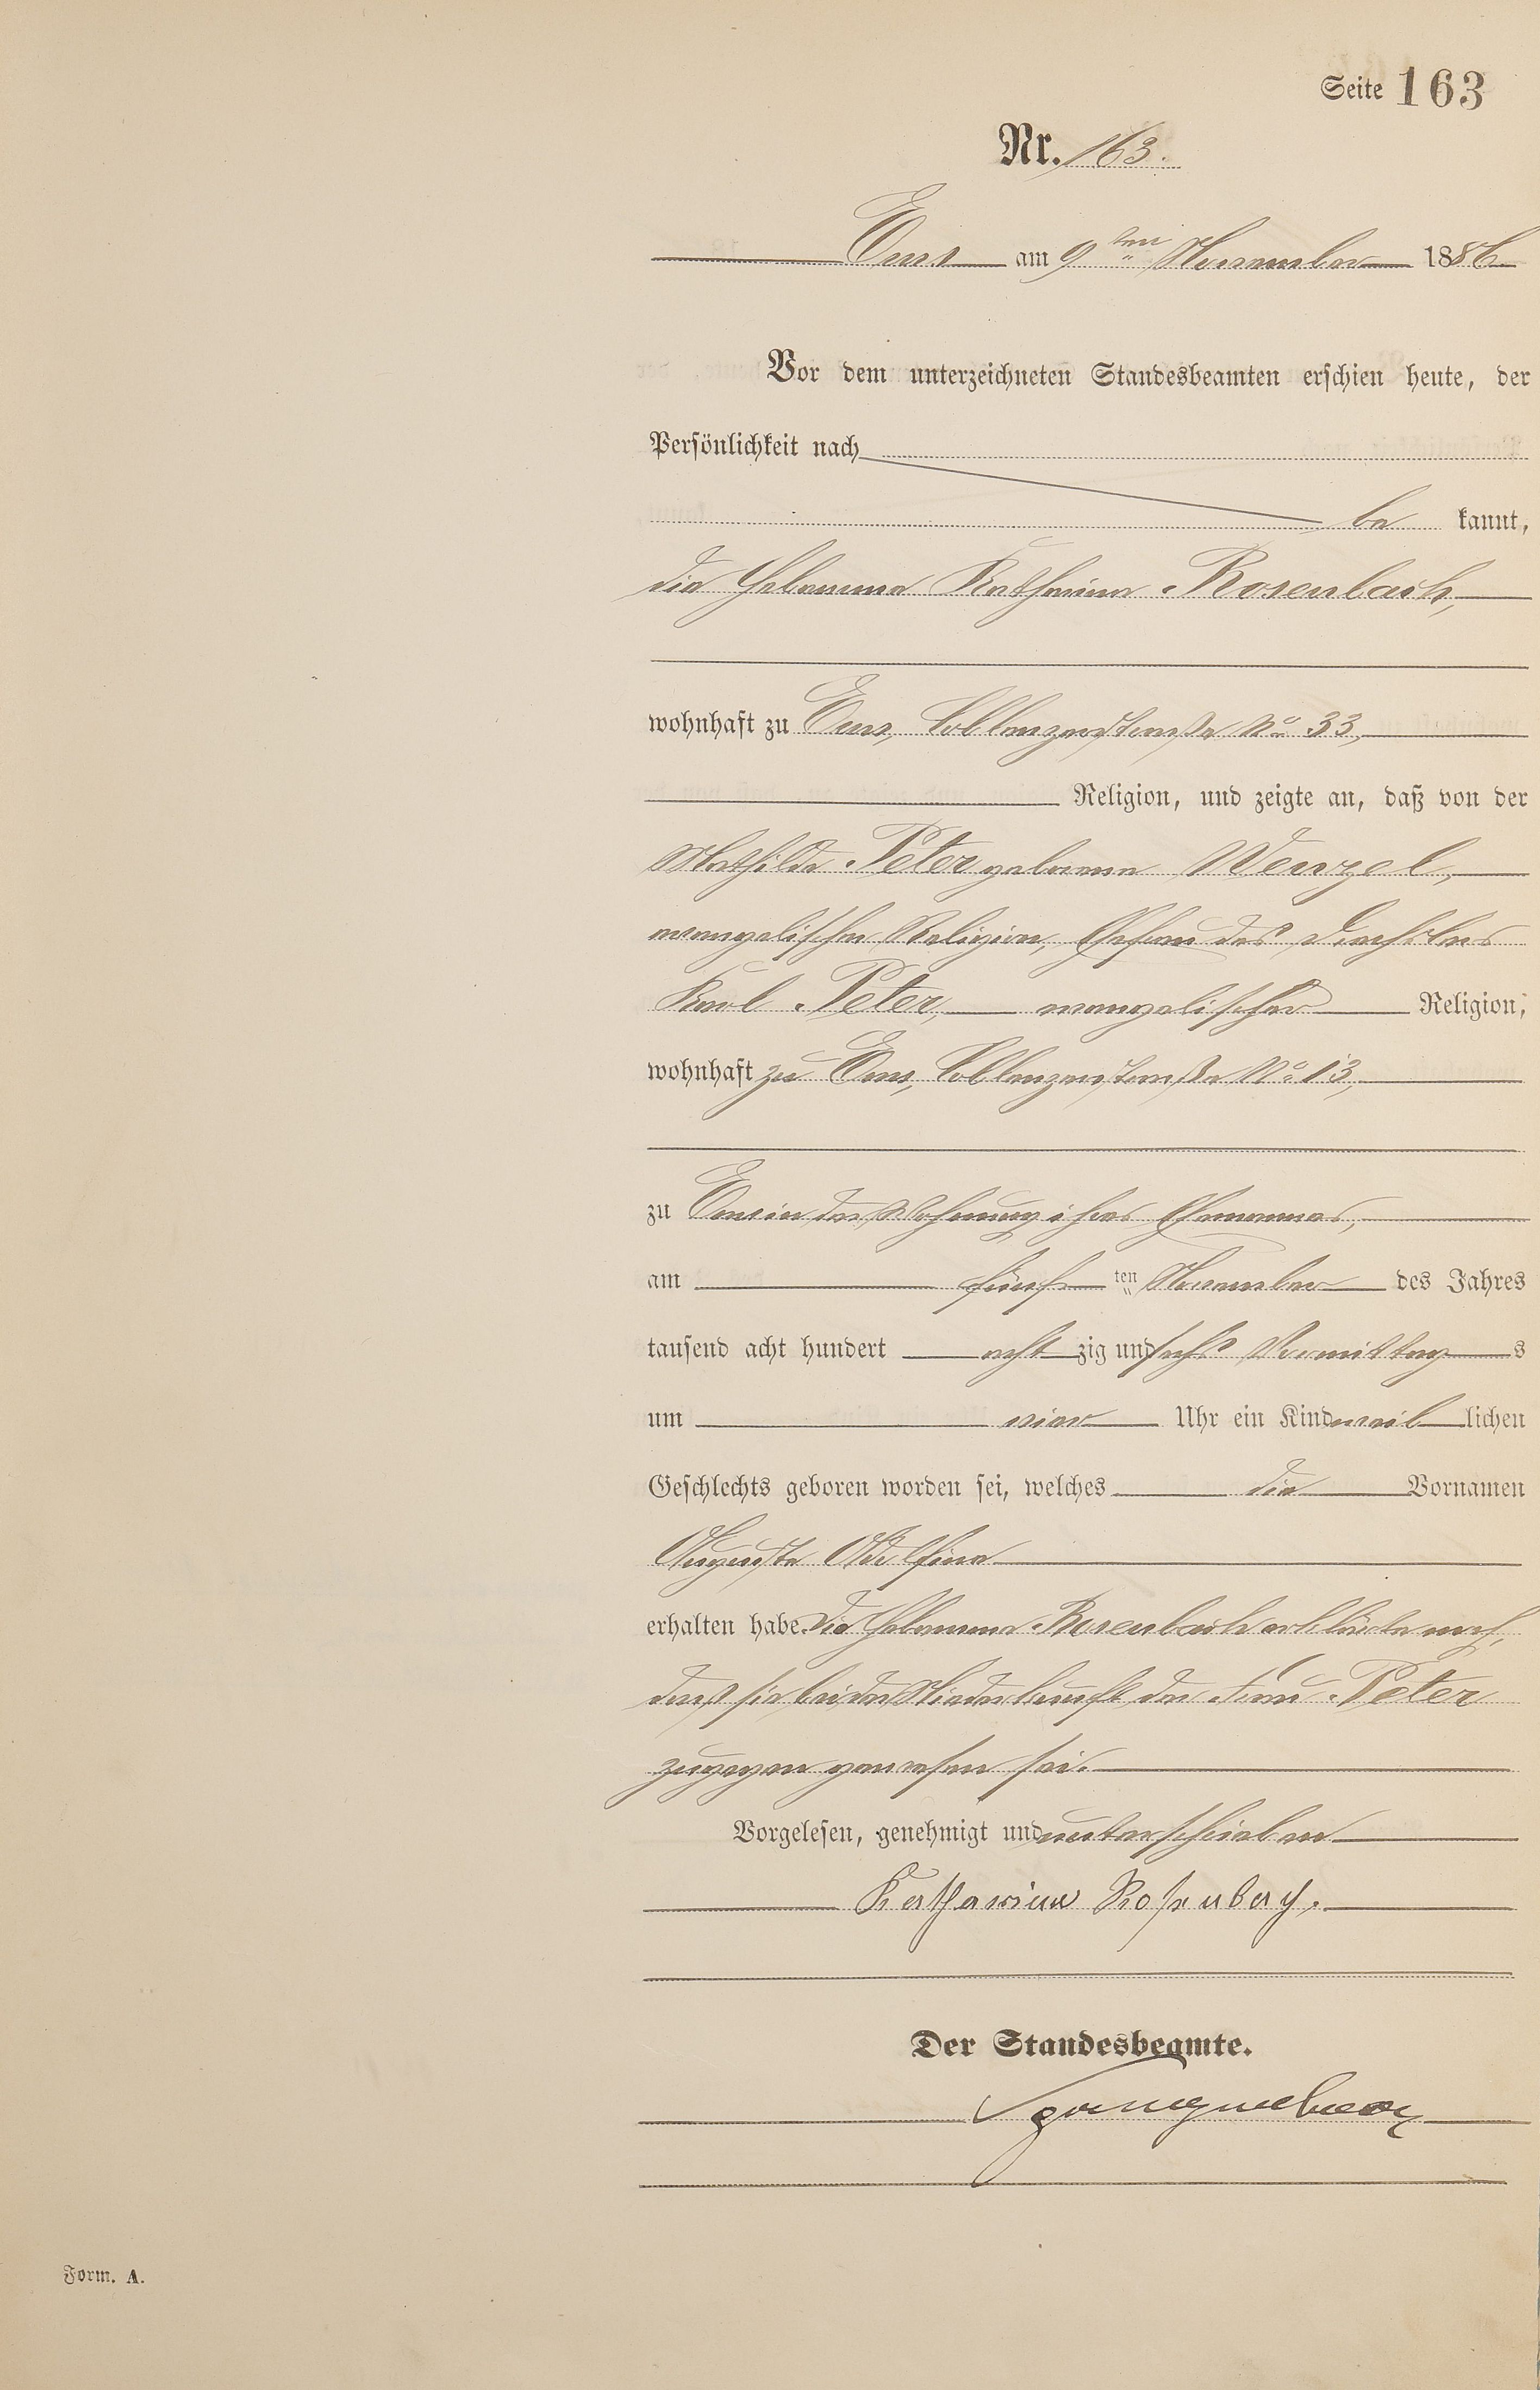 Seite 163
Nr. 163.
Ems am 9ten November 1886
Vor dem unterzeichneten Standesbeamten erschien heute, der
Persönlichkeit nach
be kannt,
die Hebamme Katharina Rosenbach,
wohnhaft zu Ems, Coblenzerstraße No 33,
Religion, und zeigte an, daß von der
Mathilde Peter geborene Wenzel,
evangelischer Religion, Ehefrau des
Karl Peter, evangelischer Religion,
wohnhaft zu Ems, Coblenzerstraße No 13,
zu Ems in der Wohnung ihres Ehemannes,
am fünf ten November des Jahres
tausend acht hundert acht zig und sechs Vormittag s
um vier Uhr ein Kind weib lichen
Geschlechts geboren worden sei, welches die Vornamen
Auguste
erhalten habe. Die Hebamme Rosenbach erklärte noch,
daß sie bei der Niederkunft der Frau Peter
zugegen gewesen sei.
Vorgelesen, genehmigt und unterschrieben
Katharina Rosenbach.
Der Standesbeamte.
Form. A.